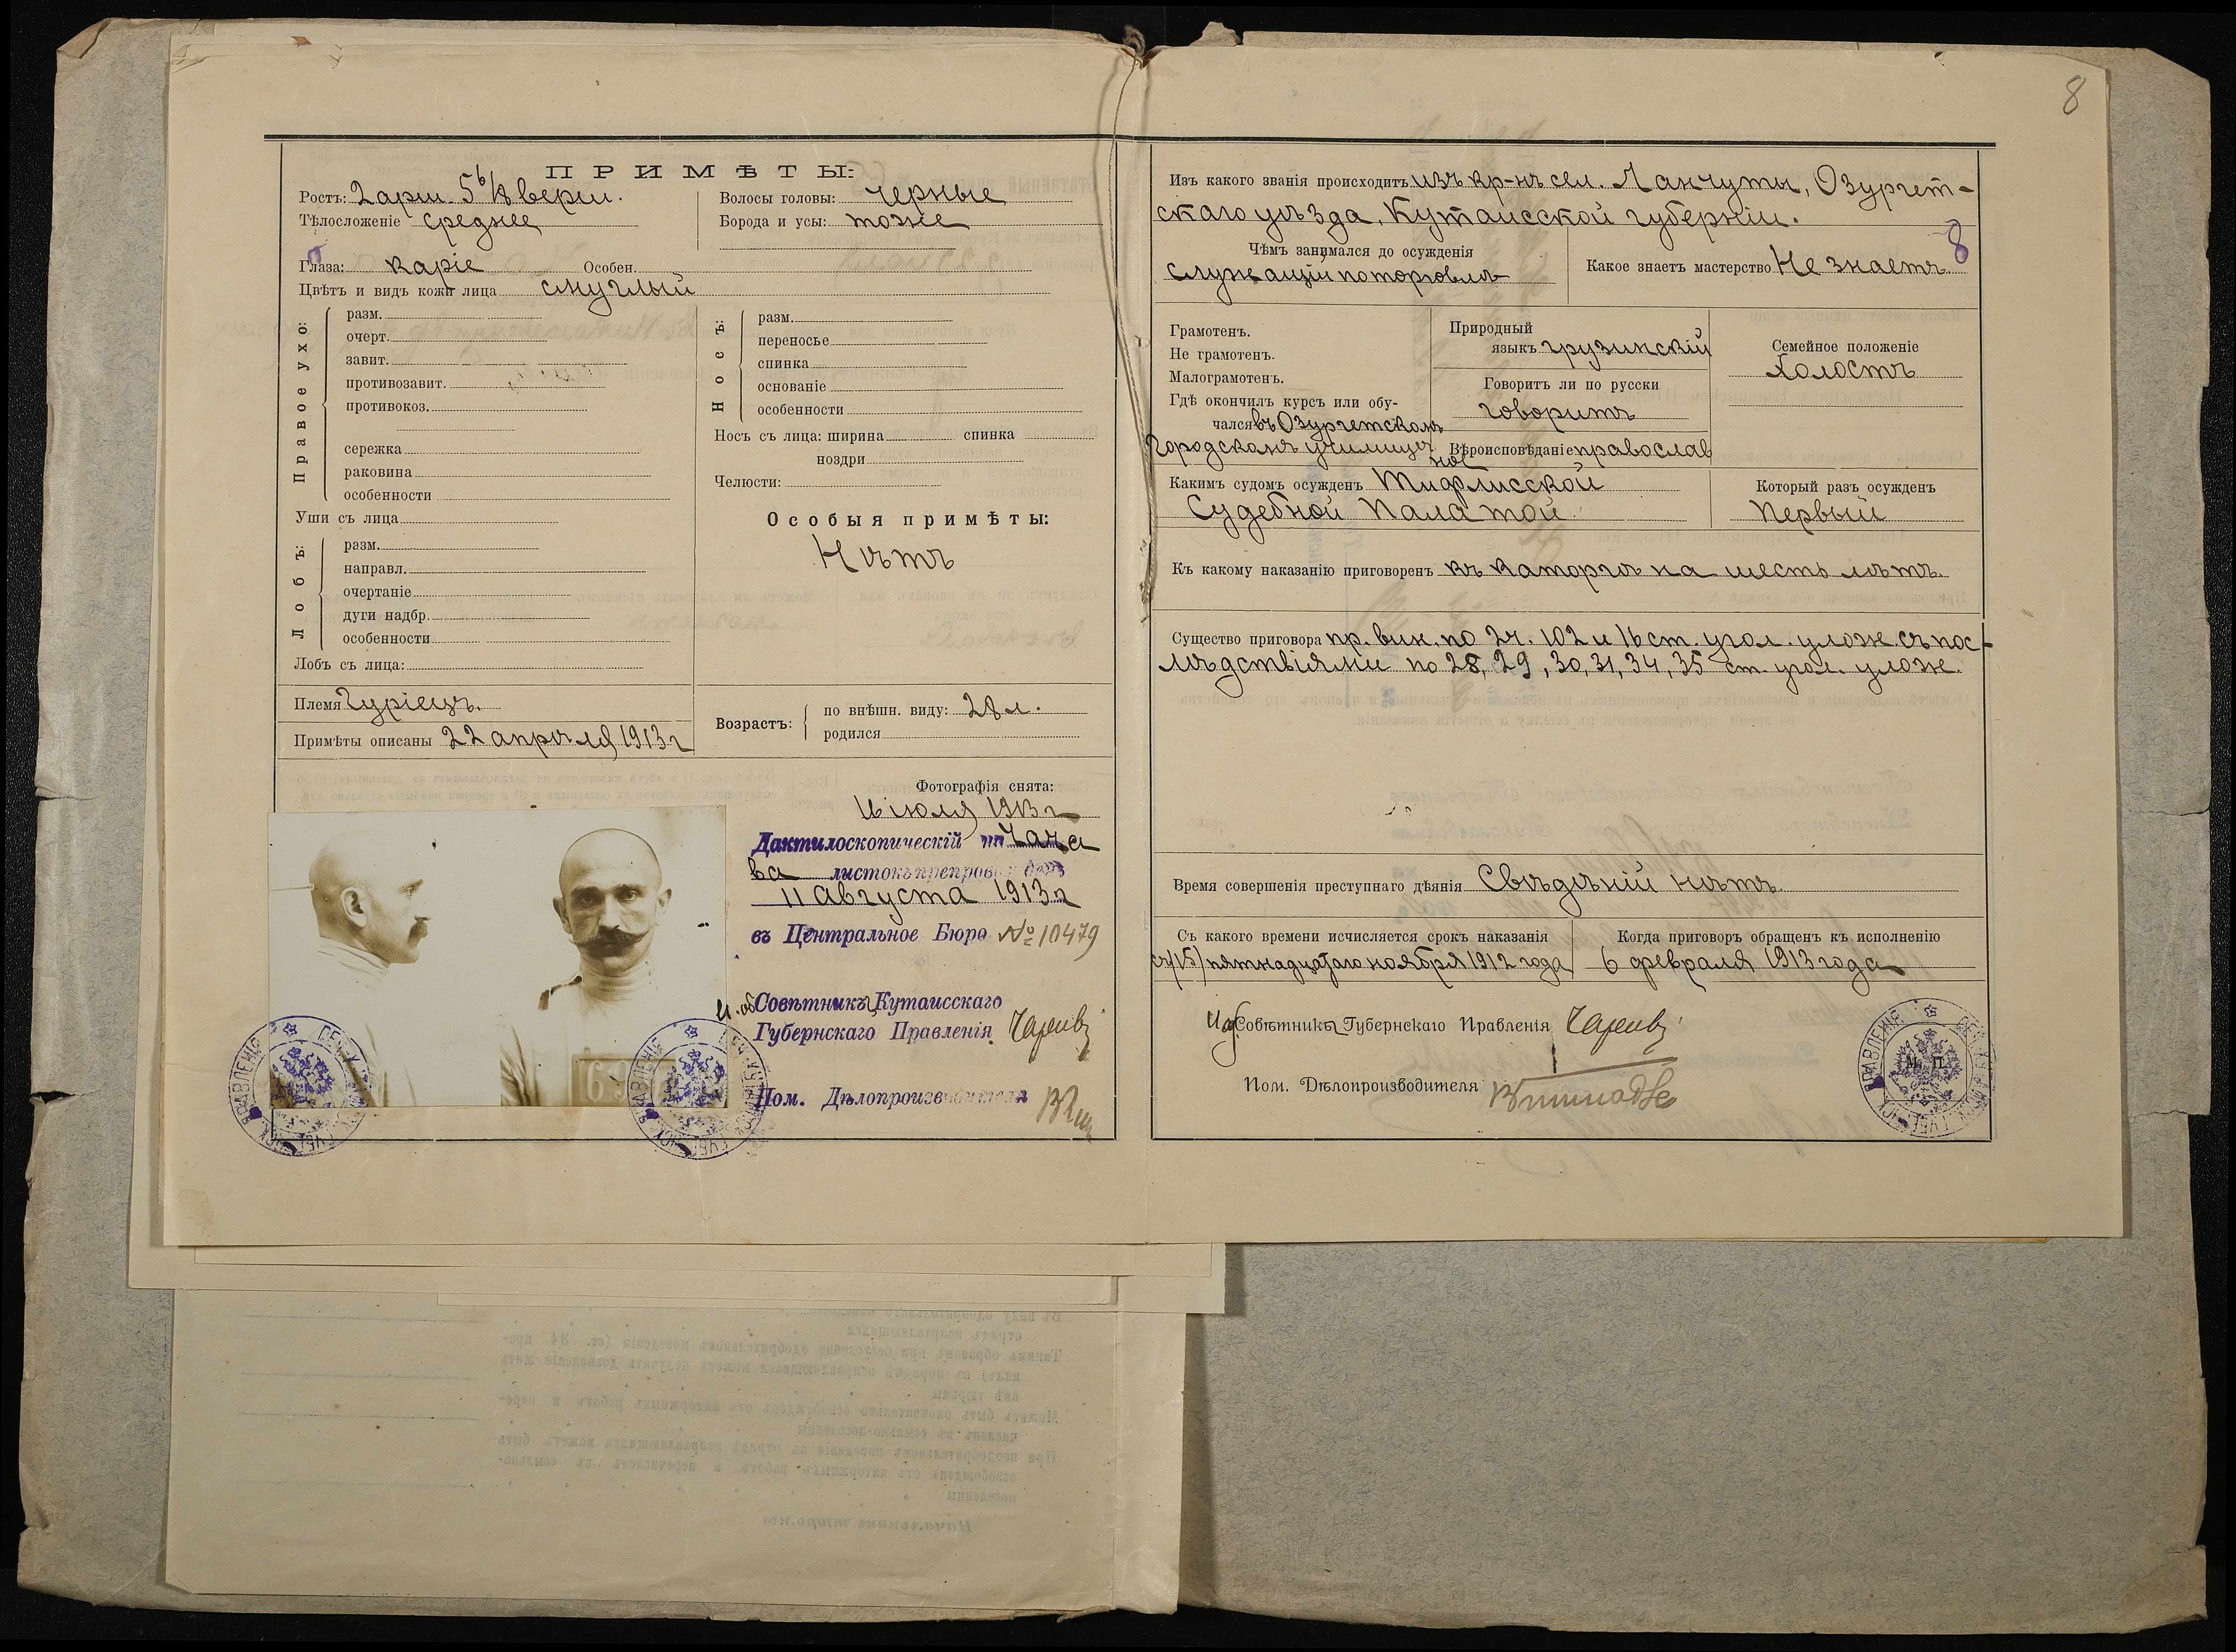 8
ПРИМѢТЫ:
Ростъ: 2 арш. 5 6/8 верш.
Волосы головы: черные
Тѣлосложеніе среднее
Борода и усы: тоже
Глаза: каріе Особен.
Цвѣтъ и видъ кожи лица смуглый
Правое ухо:
разм.
очерт.
завит.
противозавит.
противокоз.
сережка
раковина
особенности
Уши съ лица
Лобъ:
разм.
направл.
очертаніе
дуги надбр.
особенности
Лобъ съ лица:
Носъ:
разм.
переносье
спинка
основаніе
особенности
Носъ съ лица: ширина спинка
ноздри
Челюсти:
Особыя примѣты:
Нѣтъ
Племя Гуріецъ.
Примѣты описаны 22 апрѣля 1913 г
Возрастъ:
по внѣшн. виду: 28 л.
родился
Фотографія снята:
16 іюля 1913 г
Дактилоскопическій
листокъ препровожденъ
11 Августа 1913 г
въ Центральное Бюро № 10479
И. об. Совѣтникъ Кутаисскаго
Губернскаго Правленія.
Пом. Дѣлопроизводителя
69
Изъ какого званія происходитъ изъ кр-нъ сел. Ланчуты, Озургет-
скаго уѣзда, Кутаисской губерніи.
8
Чѣмъ занимался до осужденія
служащій по торговлѣ
Какое знаетъ мастерство Не знаетъ
Грамотенъ.
Не грамотенъ.
Малограмотенъ.
Гдѣ окончилъ курсъ или обу-
чался въ Озургетскомъ
Городскомъ училищѣ
Природный
языкъ грузинскій
Говоритъ ли по русски
говоритъ
Вѣроисповѣданіе православ
ное
Семейное положеніе
Холостъ
Какимъ судомъ осужденъ Тифлисской
Судебной Палатой
Который разъ осужденъ
Первый
Къ какому наказанію приговоренъ къ каторгѣ на шесть лѣтъ.
Существо приговора пр. вин. по 2 ч. 102 и 16 ст. угол. улож. съ пос-
лѣдствіями по 28, 29, 30, 31, 34, 35 ст. угол. улож.
Время совершенія преступнаго дѣянія Свѣдѣній нѣтъ.
Съ какого времени исчисляется срокъ наказанія
съ (15) пятнадцатаго ноября 1912 года
Когда приговоръ обращенъ къ исполненію
6 февраля 1913 года
И об. Совѣтникъ Губернскаго Правленія
Пом. Дѣлопроизводителя
М. П.